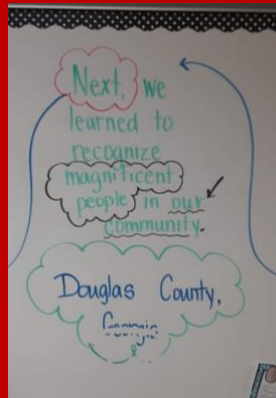 Next, we
learned to
recognize
magnificent
people in our
community.
Douglas County,
Georgia